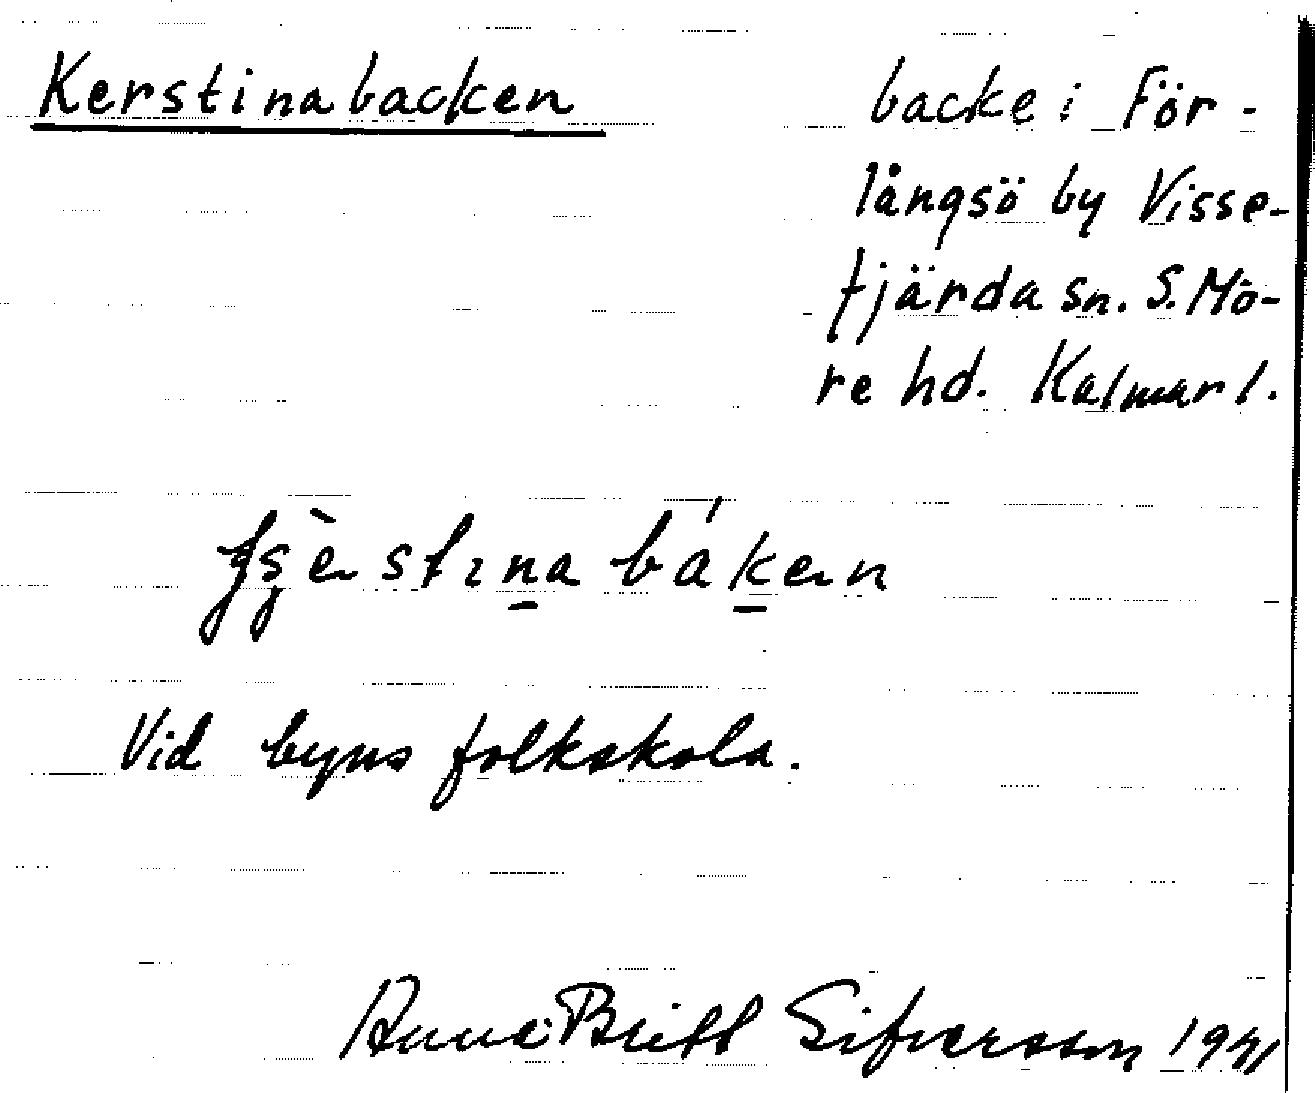 Kerstinabacken
backe i För-
långsö by Visse-
fjärda sn. S. Mö-
re hd. Kalmar l.
bákan
Vid byns folkskola.
Anna-Britt Sifversson 1941